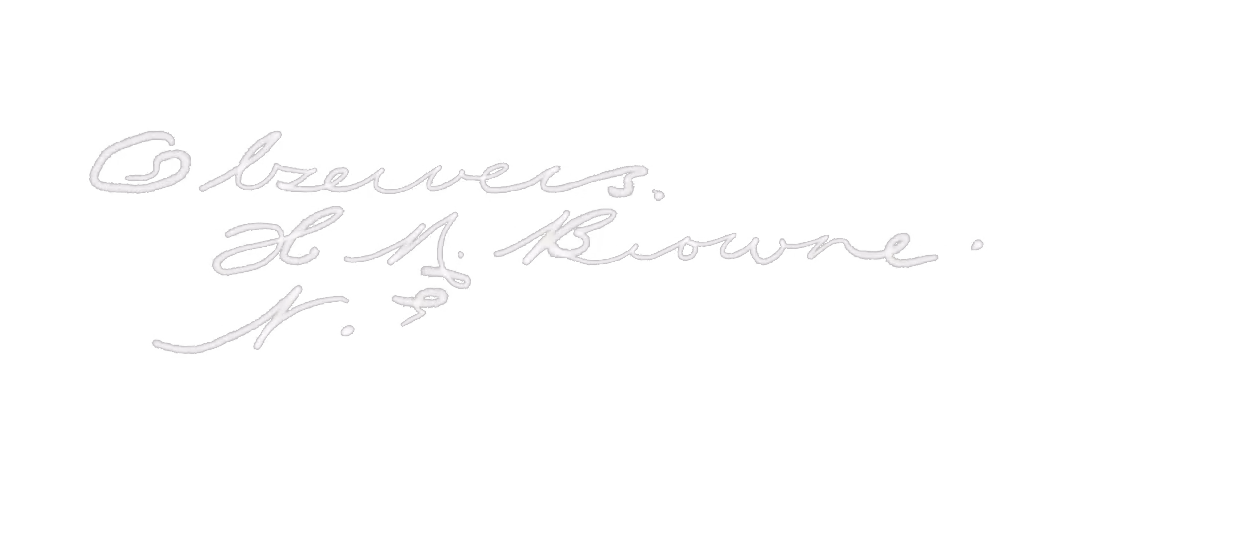 Observers.
H N. Browne.
N.